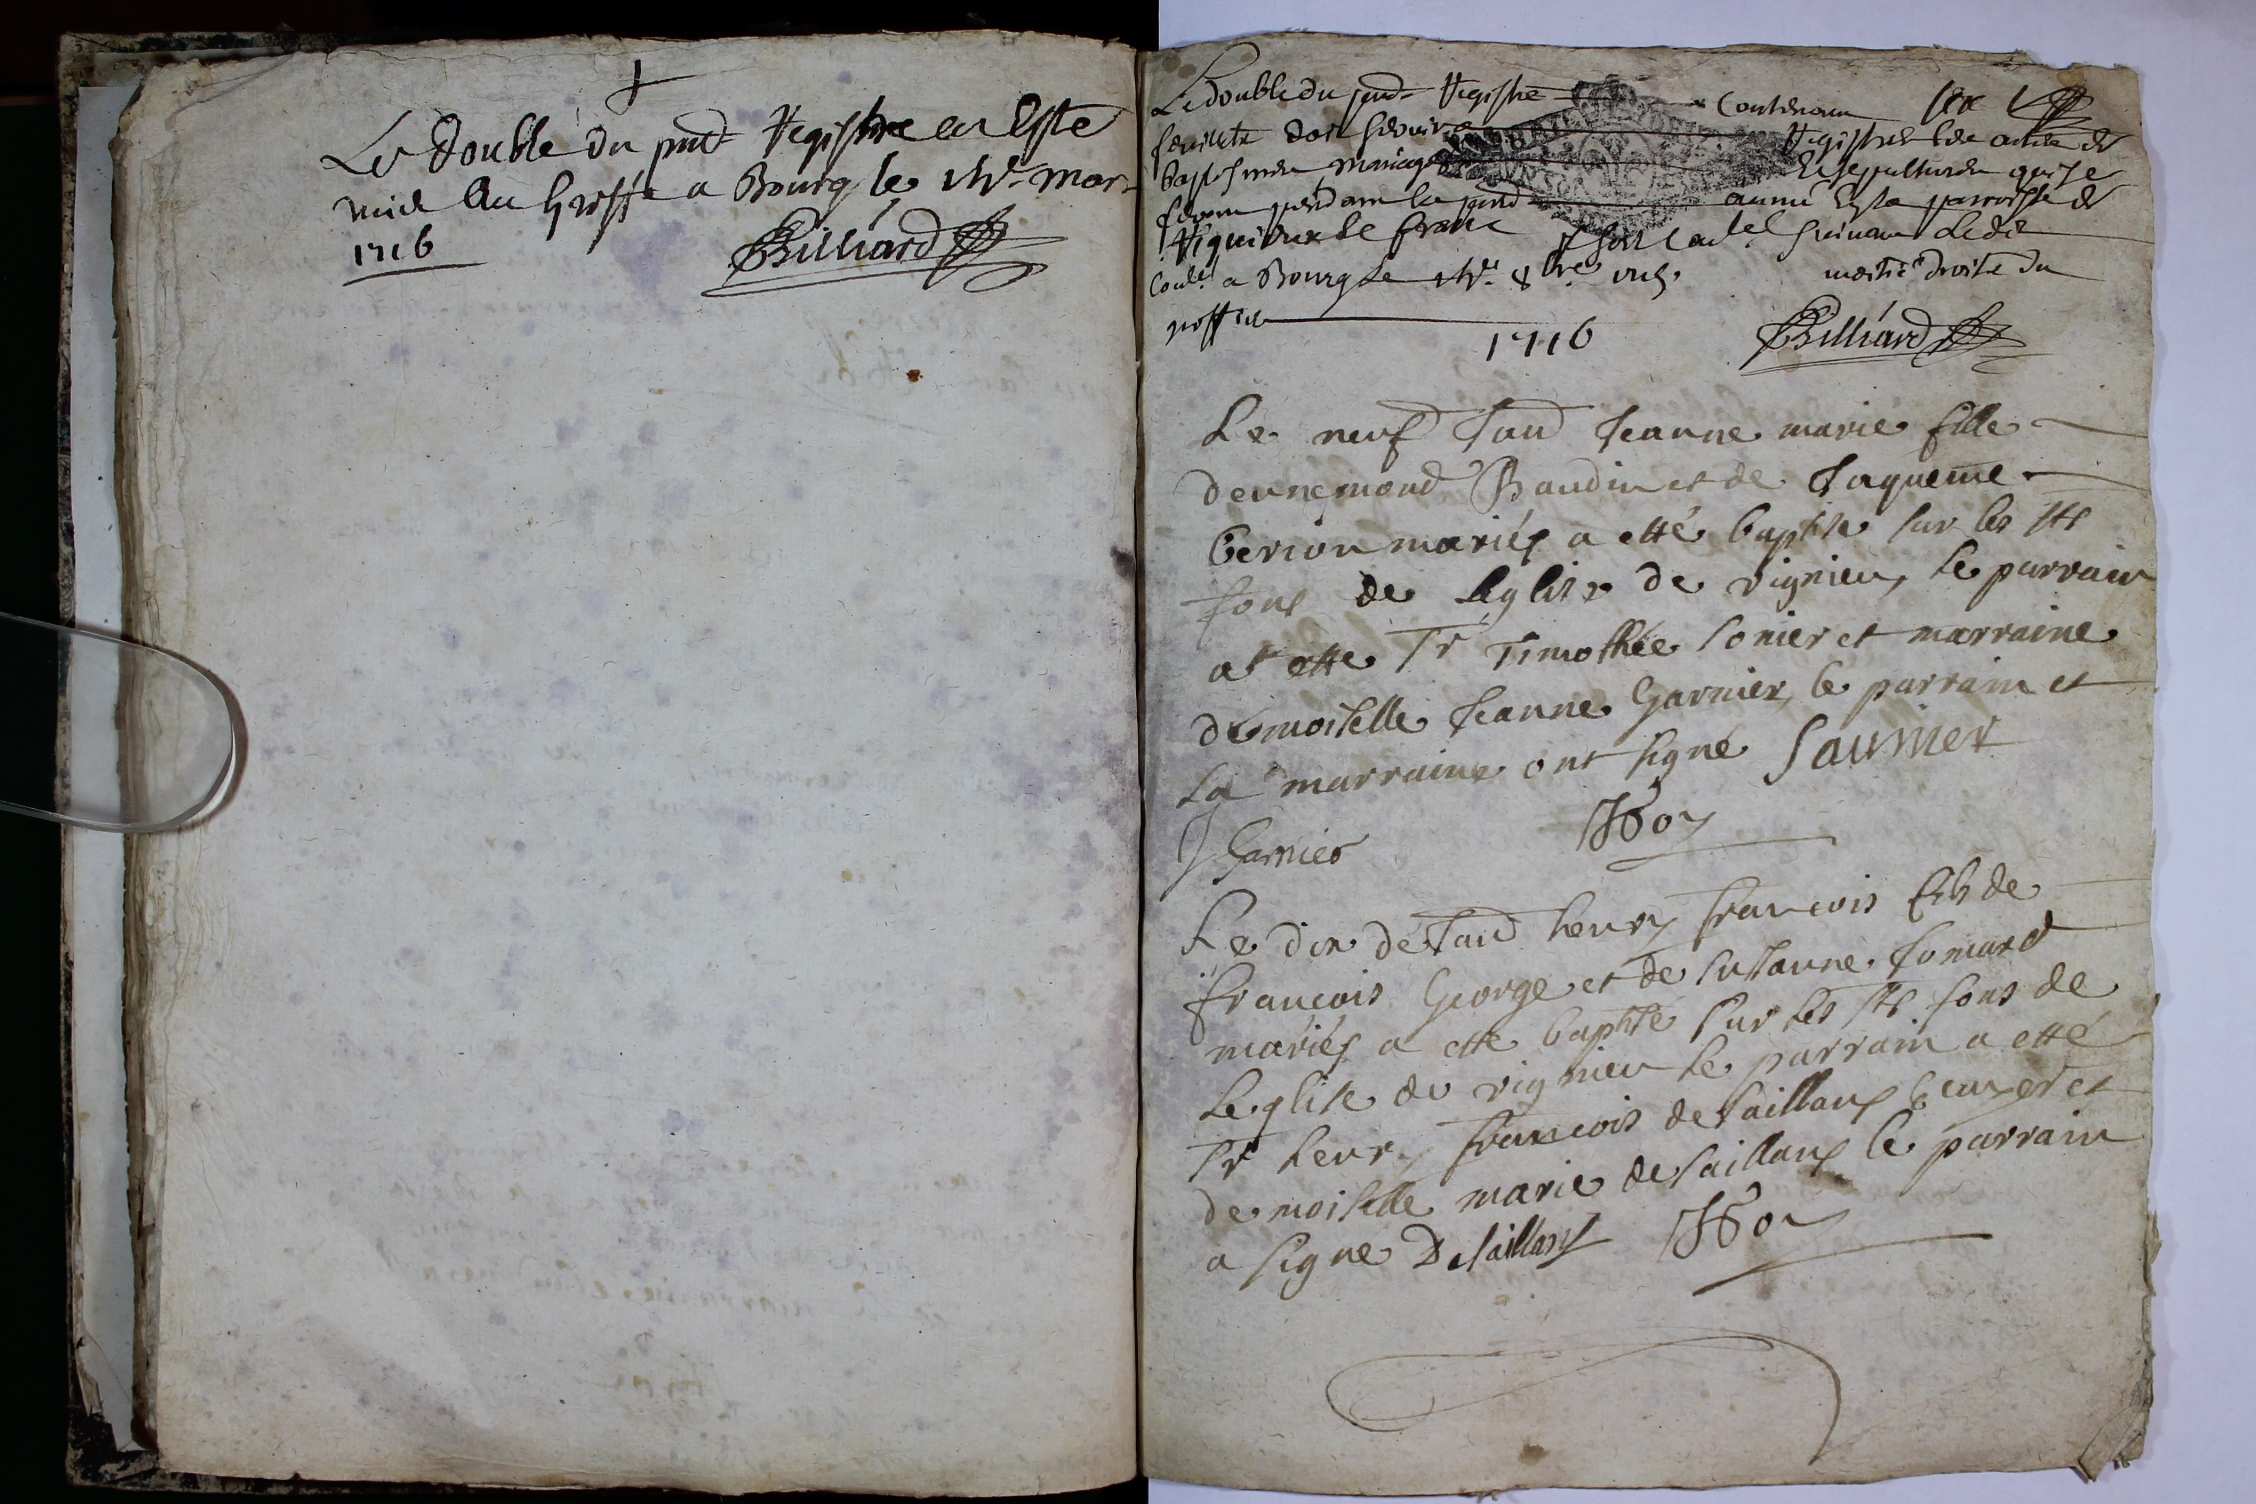 Le double du pnt Registre a Este
mis Au Greffe a Bourg le mar
1716 Billiard
Le double du pnt Registre Contenant six
feuillets doit servir a Registrer les actes de
baptesmes mariages Et sepultures qui se
feront pendant la pnt année En la parroisse de
suivant Ledit
a Bourg le 8bre moitié droits du
greffier
1716 Billiard
Le neuf Jan Jeanne marie fille
dennemond Baudin et de Jaqueme
berion mariés a etté baptise sur les sts
fons de Leglise de vignieu, le parrain
at ette Sr Timothée sonier et marraine
demoiselle Jeanne Garnier, le parrain et
La marraine ont signé Saunier
J Garnier
Le dix de Jan henry francois fils de
francois George et de susanne
mariés a etté baptisé sur les sts fons de
Leglise de vignieu le parrain a etté
Sr henry francois desaillans et
demoiselle marie desaillans le parrain
a signe Desaillans